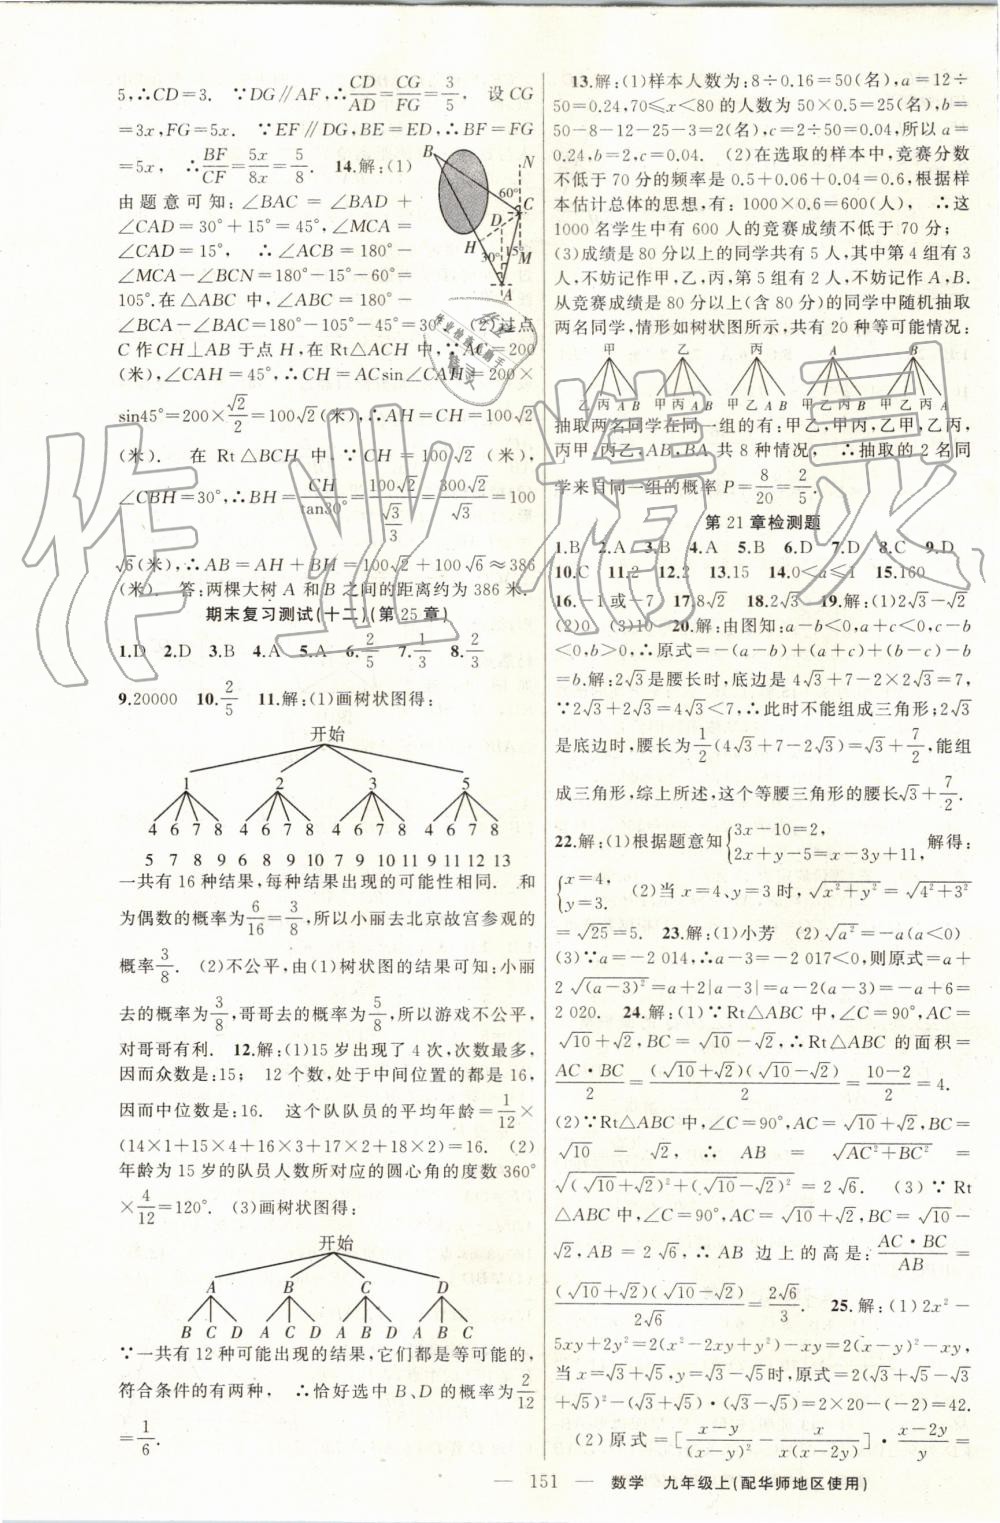 5,∴CD=3. ∵DG∥AF,∴CD/AD=CG/FG=3/5. 设 CG
=3x,FG=5x. ∵EF∥DG,BE=ED,∴BF=FG
=5x, ∴BF/CF=5x/8x=5/8. 14.解:(1)
由题意可知:∠BAC=∠BAD+
∠CAD=30°+15°=45°,∵∠ACM=
∠CAD=15°, ∴∠ACB=180°-
∠MCA-∠BCN=180°-15°-60°=
105°.在△ABC 中,∠ABC=180°-
∠BCA-∠BAC=180°-105°-45°=30° (2)过点
C 作 CH⊥AB 于点 H,在 Rt△ACH 中,∵AC=200
(米),∠CAH=45°,∴CH=ACsin∠CAH=200×
sin45°=200×√2/2=100√2(米),∴AH=CH=100√2
(米). 在 Rt△BCH 中,∵CH=100√2(米),
∠CBH=30°,∴BH=CH/tan30°=100√2/(√3/3)=300√2/√3=100
√6(米),∴AB=AH+BH=100√2+100√6≈386
(米). 答:两棵大树 A 和 B 之间的距离约为 386 米.
B N 60° C D H 15° 30° M A
期末复习测试(十二)(第 25 章)
1.D 2.D 3.B 4.A 5.A 6.2/5 7.1/3 8.2/3
9.20000 10.2/5 11.解:(1)画树状图得:
开始
1 2 3 5
4 6 7 8 4 6 7 8 4 6 7 8 4 6 7 8
5 7 8 9 6 8 9 10 7 9 10 11 9 11 12 13
一共有 16 种结果,每种结果出现的可能性相同. 和
为偶数的概率为6/16=3/8,所以小丽去北京故宫参观的
概率3/8. (2)不公平,由(1)树状图的结果可知:小丽
去的概率为3/8,哥哥去的概率为5/8,所以游戏不公平,
对哥哥有利. 12.解:(1)15 岁出现了 4 次,次数最多,
因而众数是:15; 12 个数,处于中间位置的都是 16,
因而中位数是:16. 这个队队员的平均年龄=1/12×
(14×1+15×4+16×3+17×2+18×2)=16. (2)
年龄为 15 岁的队员人数所对应的圆心角的度数 360°
×4/12=120°. (3)画树状图得:
开始
A B C D
B C D A C D A B D A B C
∵一共有 12 种可能出现的结果,它们都是等可能的,
符合条件的有两种, ∴恰好选中 B、D 的概率为2/12
=1/6.
13.解:(1)样本人数为:8÷0.16=50(名),a=12÷
50=0.24,70≤x<80 的人数为 50×0.5=25(名),b=
50-8-12-25-3=2(名),c=2÷50=0.04,所以 a=
0.24,b=2,c=0.04. (2)在选取的样本中,竞赛分数
不低于 70 分的频率是 0.5+0.06+0.04=0.6,根据样
本估计总体的思想,有:1000×0.6=600(人), ∴这
1000 名学生中有 600 人的竞赛成绩不低于 70 分;
(3)成绩是 80 分以上的同学共有 5 人,其中第 4 组有 3
人,不妨记作甲,乙,丙,第 5 组有 2 人,不妨记作 A,B.
从竞赛成绩是 80 分以上(含 80 分)的同学中随机抽取
两名同学,情形如树状图所示,共有 20 种等可能情况:
甲 乙 丙 A B
乙 丙 A B 甲 丙 A B 甲 乙 A B 甲 乙 丙 B 甲 乙 丙 A
抽取两名同学在同一组的有:甲乙,甲丙,乙甲,乙丙,
丙甲,丙乙,AB,BA 共 8 种情况, ∴抽取的 2 名同
学来自同一组的概率 P=8/20=2/5.
第 21 章检测题
1.B 2.A 3.B 4.A 5.B 6.D 7.D 8.C 9.D
10.C 11.2 12.2 13.15 14.0<a≤1 15.160
16.-1 或-7 17.8√2 18.2√3 19.解:(1)2√3-2
(2)0 (3)10 20.解:由图知:a-b<0,a+c<0,c-b
<0,b>0,∴原式=-(a-b)+(a+c)+(b-c)-b
=b.解:2√3是腰长时,底边是 4√3+7-2×2√3=7,
∵2√3+2√3=4√3<7,∴此时不能组成三角形;2√3
是底边时,腰长为1/2(4√3+7-2√3)=√3+7/2,能组
成三角形,综上所述,这个等腰三角形的腰长√3+7/2.
22.解:(1)根据题意知{3x-10=2, 2x+y-5=x-3y+11, 解得:
{x=4, y=3. (2)当 x=4、y=3 时,√(x²+y²)=√(4²+3²)
=√25=5. 23.解:(1)小芳 (2)√a²=-a(a<0)
(3)∵a=-2 014,∴a-3=-2 017<0,则原式=a+
2√(a-3)²=a+2|a-3|=a-2(a-3)=-a+6=
2 020. 24.解:(1)∵Rt△ABC 中,∠C=90°,AC=
√10+√2,BC=√10-√2,∴Rt△ABC 的面积=
AC·BC/2=(√10+√2)(√10-√2)/2=(10-2)/2=4.
(2)∵Rt△ABC 中,∠C=90°,AC=√10+√2,BC=
√10-√2, ∴ AB = √(AC²+BC²) =
√((√10+√2)²+(√10-√2)²)=2√6. (3)∵Rt
△ABC 中,∠C=90°,AC=√10+√2,BC=√10-
√2,AB=2√6,∴AB 边上的高是:AC·BC/AB=
(√10+√2)(√10-√2)/2√6=2√6/3. 25.解:(1)2x²-
5xy+2y²=2(x²-2xy+y²)-xy=2(x-y)²-xy,
当 x=√5+√3,y=√5-√3时,原式=2(√5+√3-√3
+√5)²-(√3+√5)·(√5-√3)=2×20-(-2)=42.
(2)原式=[(x-y)/(x-y)²-x/(x(x-2y))]·(x-2y)/y=
151 数学 九年级上(配华师地区使用)
作业精灵